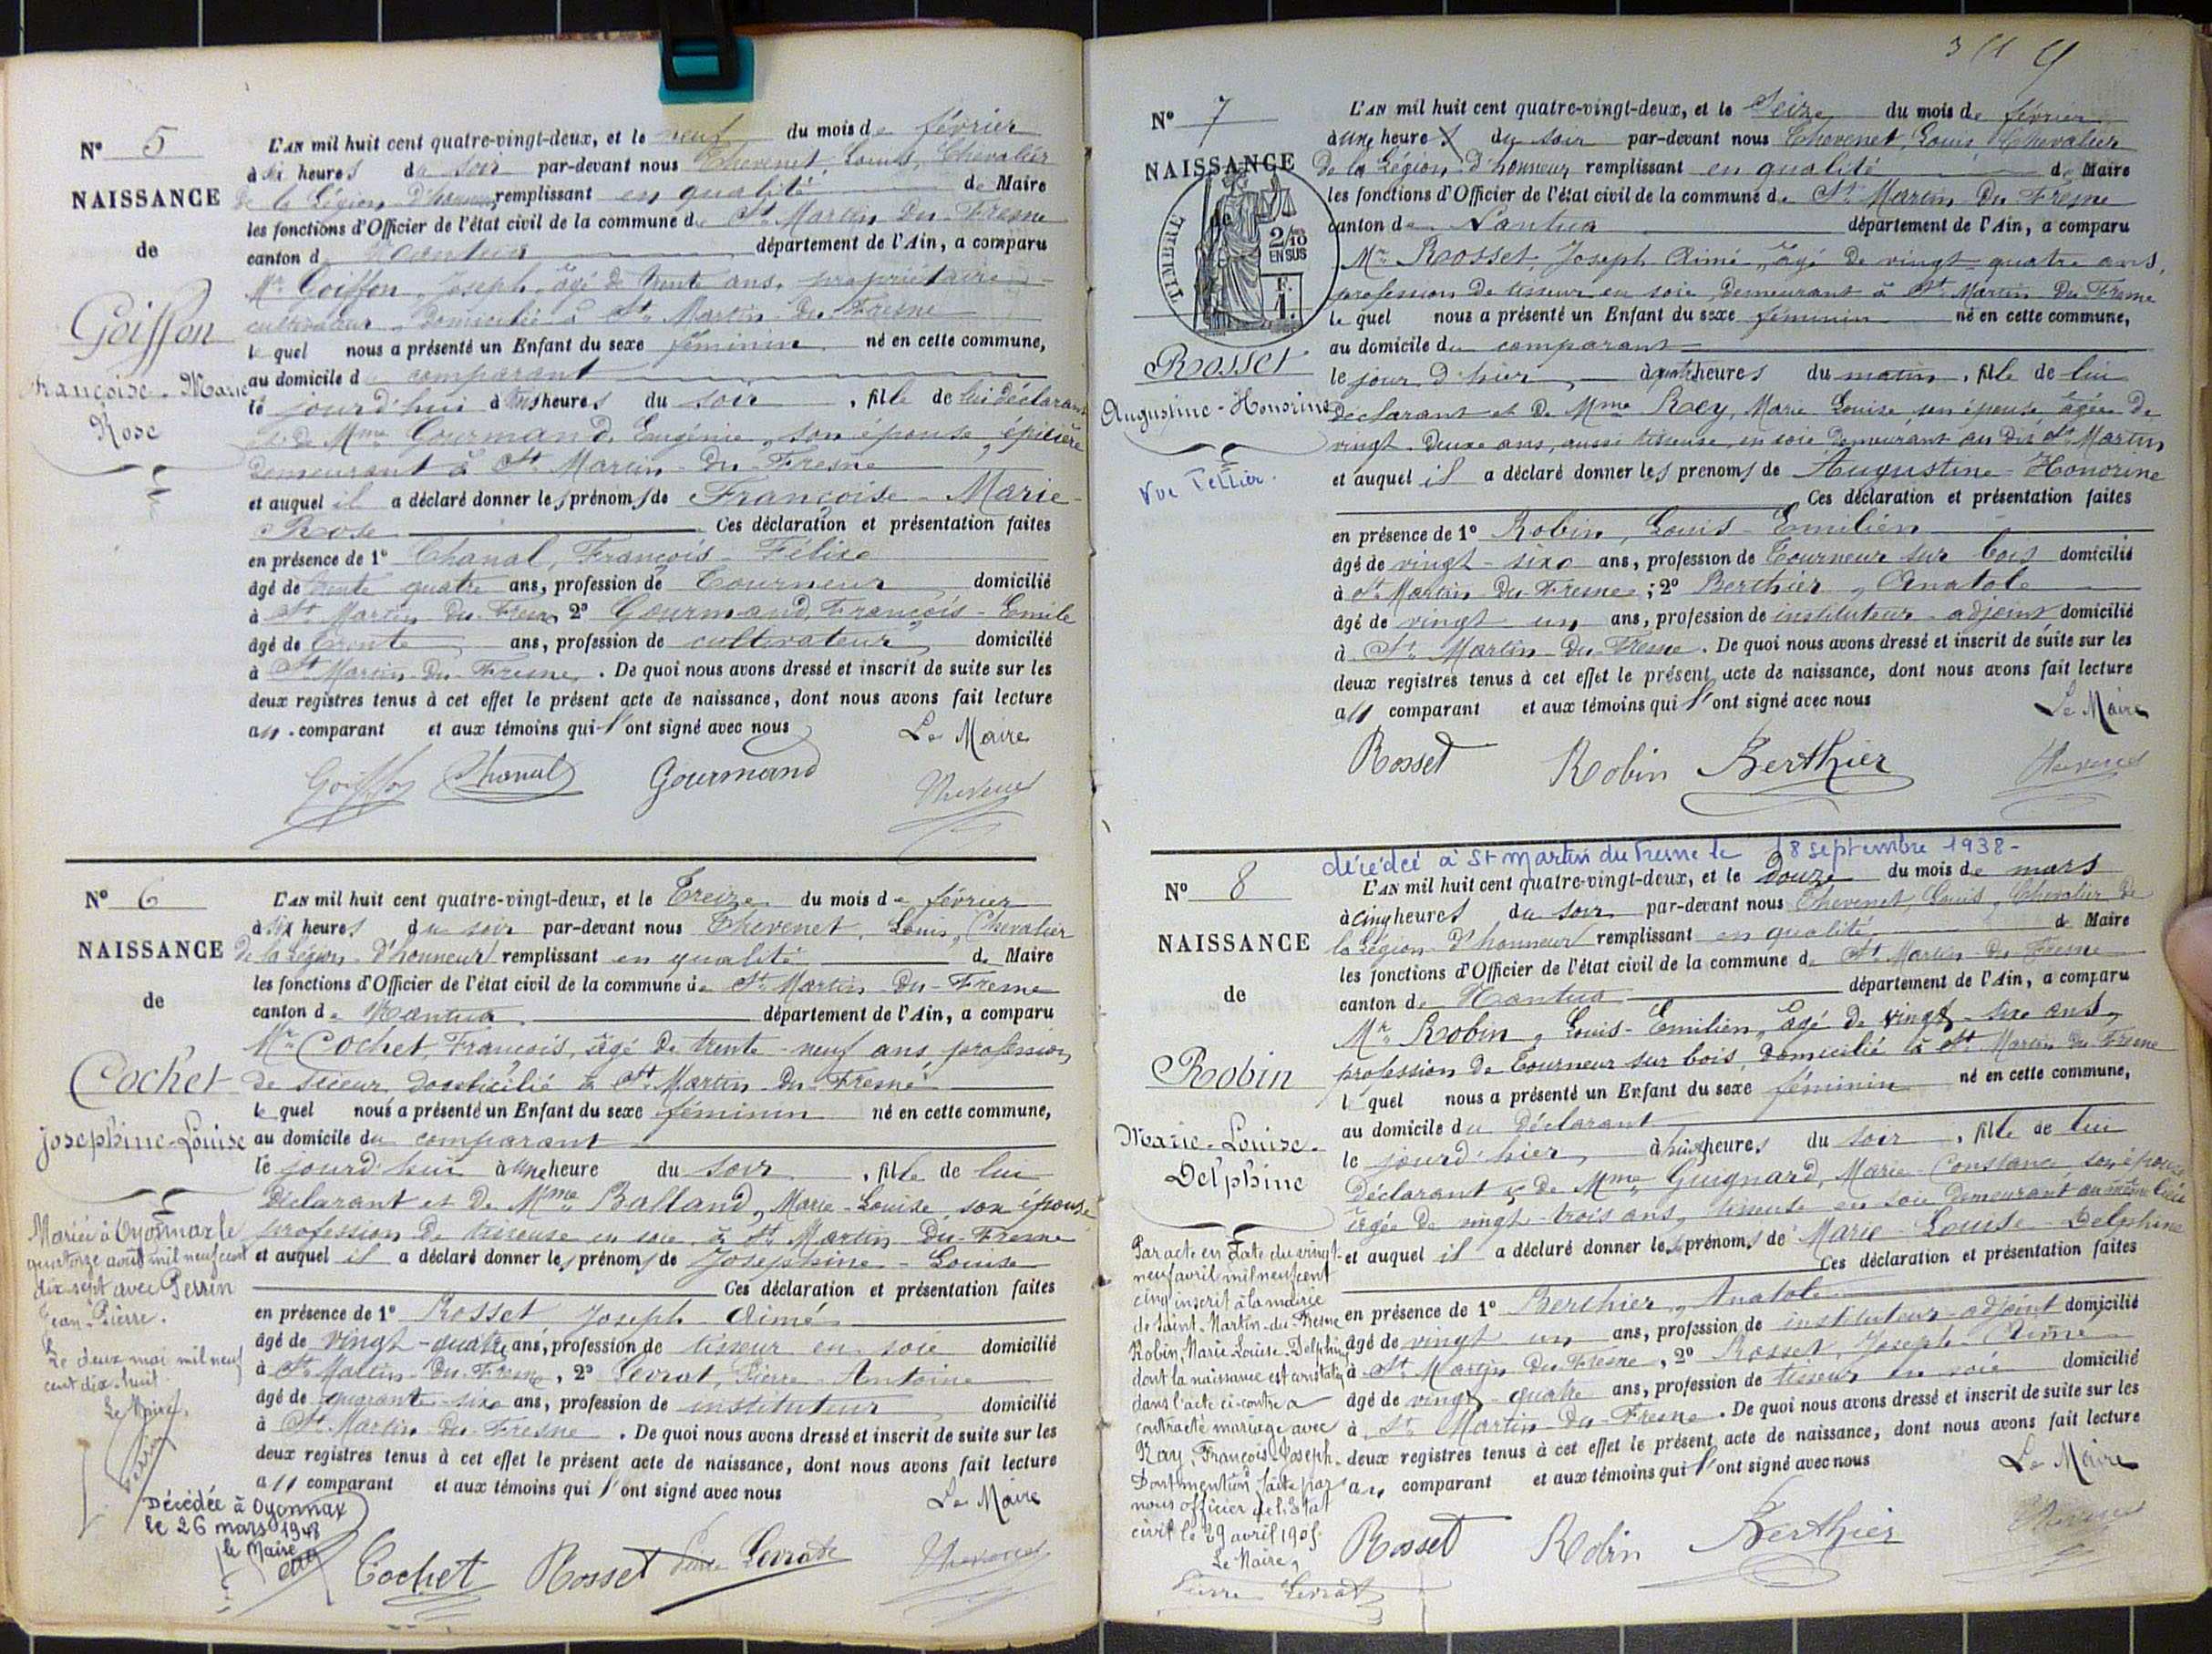 N° 5
NAISSANCE
de
Goiffon
Françoise-Marie
Rose
L'AN mil huit cent quatre-vingt-deux, et le neuf du mois de février
à six heures du soir par-devant nous Thevenet, Louis, Chevalier
de la Légion d'honneur, remplissant en qualité de Maire
les fonctions d'Officier de l'état civil de la commune de St Martin-Du-Fresne
canton de Nantua département de l'Ain, a comparu
Mr Goiffon, Joseph, âgé de trente ans, propriétaire
cultivateur, domicilié à St Martin-Du-Fresne
le quel nous a présenté un Enfant du sexe féminin né en cette commune,
au domicile du comparant
le jourd'hui à trois heures du soir, fille de lui déclarant
et de Mme Gourmand, Eugénie, son épouse, épicière
demeurant à St Martin-Du-Fresne
et auquel il a déclaré donner les prénoms de Françoise-Marie-
Rose Ces déclaration et présentation faites
en présence de 1° Chanal, François-Félix
âgé de trente quatre ans, profession de Tourneur domicilié
à St Martin-Du-Fresne 2° Gourmand, François-Emile
âgé de trente ans, profession de cultivateur domicilié
à St Martin-Du-Fresne. De quoi nous avons dressé et inscrit de suite sur les
deux registres tenus à cet effet le présent acte de naissance, dont nous avons fait lecture
au comparant et aux témoins qui l'ont signé avec nous
Le Maire
Goiffon Chanal Gourmand Thevenet
N° 6
NAISSANCE
de
Cochet
Josephine-Louise
Mariée à Oyonnax le
quatorze août mil neuf cent
dix-sept avec Perrin
Jean-Pierre.
Le deux mai mil neuf
cent dix-huit
Le Maire,
Décédée à Oyonnax
le 26 mars 1948
le Maire
L'AN mil huit cent quatre-vingt-deux, et le Treize du mois de février
à six heures du soir par-devant nous Thevenet, Louis, Chevalier
de la Légion d'honneur remplissant en qualité de Maire
les fonctions d'Officier de l'état civil de la commune de St Martin-Du-Fresne
canton de Nantua département de l'Ain, a comparu
Mr Cochet, François, âgé de trente-neuf ans, profession
de scieur, domicilié à St Martin-Du-Fresne
le quel nous a présenté un Enfant du sexe féminin né en cette commune,
au domicile du comparant
le jourd'hui à une heure du soir, fille de lui
Déclarant et de Mme Balland, Marie-Louise, son épouse
profession de tisseuse en soie, à St Martin-Du-Fresne
et auquel il a déclaré donner les prénoms de Josephine-Louise
Ces déclaration et présentation faites
en présence de 1° Rosset, Joseph-Aimé
âgé de vingt-quatre ans, profession de tisseur en soie domicilié
à St Martin-Du-Fresne, 2° Levrat, Pierre-Antoine
âgé de quarante-six ans, profession de instituteur domicilié
à St Martin-Du-Fresne. De quoi nous avons dressé et inscrit de suite sur les
deux registres tenus à cet effet le présent acte de naissance, dont nous avons fait lecture
au comparant et aux témoins qui l'ont signé avec nous
Le Maire
Cochet Rosset Pierre Levrat Thevenet
N° 7
NAISSANCE
de
TIMBRE
2/10
EN SUS
F.
1.
Rosset
Augustine-Honorine
Vve Tellier.
L'AN mil huit cent quatre-vingt-deux, et le Seize du mois de février
à une heure du soir par-devant nous Thevenet, Louis, Chevalier
de la Légion-d'honneur, remplissant en qualité de Maire
les fonctions d'Officier de l'état civil de la commune de St Martin-Du-Fresne
canton de Nantua département de l'Ain, a comparu
Mr Rosset, Joseph-Aimé, âgé de vingt-quatre ans,
profession de tisseur en soie, demeurant à St Martin-Du-Fresne
le quel nous a présenté un Enfant du sexe féminin né en cette commune,
au domicile du comparant
le jour d'hier à quatre heures du matin, fille de lui
déclarant et de Mme Rey, Marie-Louise, son épouse âgée de
vingt-deux ans, aussi tisseuse, en soie demeurant au dit St Martin
et auquel il a déclaré donner les prénoms de Augustine-Honorine
Ces déclaration et présentation faites
en présence de 1° Robin, Louis-Emilien
âgé de vingt-six ans, profession de Tourneur sur bois domicilié
à St Martin-Du-Fresne; 2° Berthier, Anatole
âgé de vingt un ans, profession de instituteur-adjoint domicilié
à St Martin-Du-Fresne. De quoi nous avons dressé et inscrit de suite sur les
deux registres tenus à cet effet le présent acte de naissance, dont nous avons fait lecture
au comparant et aux témoins qui l'ont signé avec nous
Le Maire
Rosset Robin Berthier Thevenet
décédée à St Martin du Fresne le 18 septembre 1938-
N° 8
NAISSANCE
de
Robin
Marie-Louise-
Delphine
Par acte en date du vingt-
neuf avril mil neuf cent
cinq inscrit à la mairie
de Saint-Martin-du-Fresne
Robin, Marie Louise-Delphine
dont la naissance est constatée
dans l'acte ci-contre a
contracté mariage avec
Ray, François-Joseph.
Dont mention faite par
nous officier de l'état
civil le 29 avril 1905.
Le Maire,
Pierre Levrat
L'AN mil huit cent quatre-vingt-deux, et le Douze du mois de mars
à cinq heures du soir par-devant nous Thevenet, Louis, Chevalier de
la Légion-d'honneur remplissant en qualité de Maire
les fonctions d'Officier de l'état civil de la commune de St Martin-Du-Fresne
canton de Nantua département de l'Ain, a comparu
Mr Robin, Louis-Emilien, âgé de vingt-six ans,
profession de Tourneur sur bois, domicilié à St Martin-Du-Fresne
le quel nous a présenté un Enfant du sexe féminin né en cette commune,
au domicile du Déclarant
le jourd'hier, à huit heures du soir, fille de lui
Déclarant & de Mme Guignard, Marie-Constance, son épouse
âgée de vingt-trois ans, tisseuse en soie demeurant au même lieu
et auquel il a déclaré donner les prénoms de Marie-Louise-Delphine
Ces déclaration et présentation faites
en présence de 1° Berthier, Anatole
âgé de vingt un ans, profession de instituteur-adjoint domicilié
à St Martin-Du-Fresne, 2° Rosset, Joseph-Aimé
âgé de vingt-quatre ans, profession de tisseur en soie domicilié
à St Martin-Du-Fresne. De quoi nous avons dressé et inscrit de suite sur les
deux registres tenus à cet effet le présent acte de naissance, dont nous avons fait lecture
au comparant et aux témoins qui l'ont signé avec nous
Le Maire
Rosset Robin Berthier Thevenet